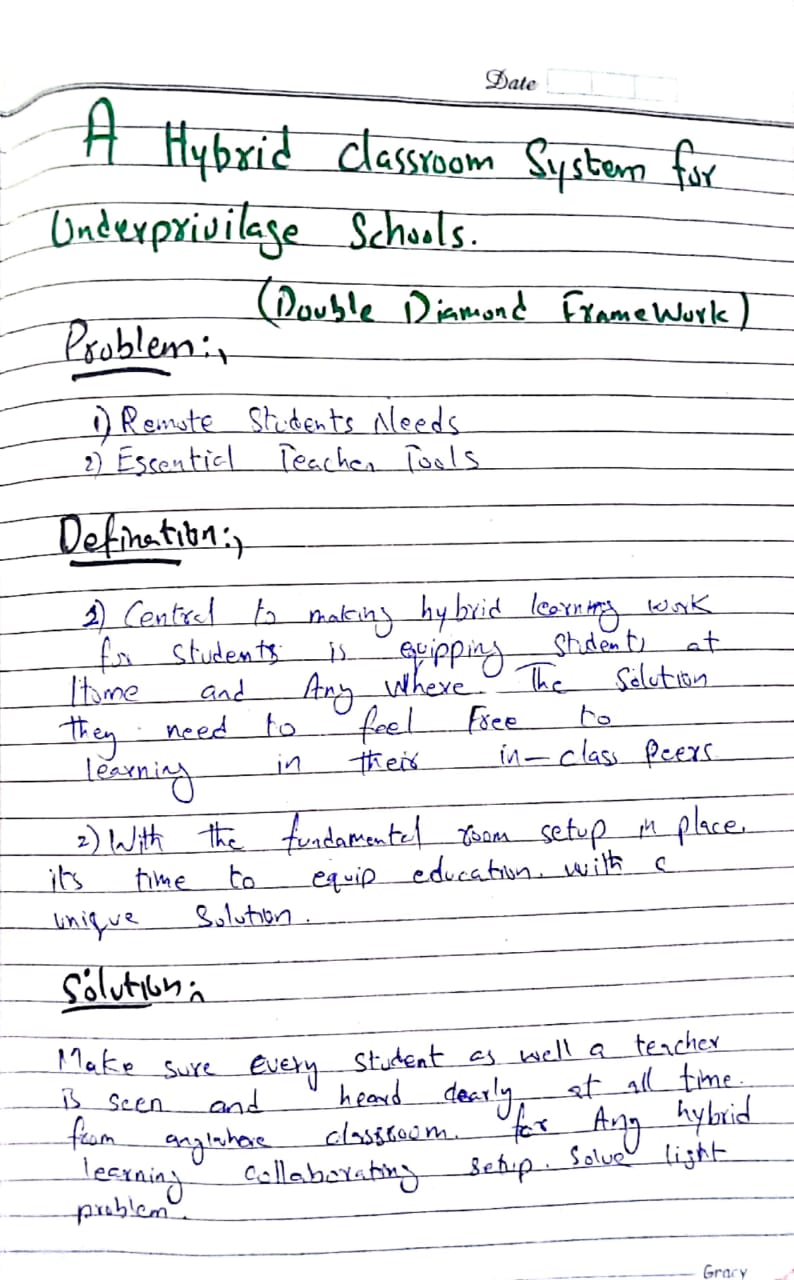 Date
A Hybrid Classroom System for
Underprivilage Schools.
(Double Diamond FrameWork)
Problem:,
1) Remote Students Needs
2) Essential Teacher Tools
Defination:,
1) Central to making hybrid learning work
for Students is equipping Students at
Home and Any Where. The Solution
they need to feel Free to
learning in their in-class Peers
2) With the fundamental room setup in place,
its time to equip education. with a
unique Solution.
Solution:
Make sure Every Student as well a teacher
is seen and heard clearly at all time.
from anywhere classroom. for Any hybrid
learning Collaborating setup. Solve light
problem.
Gracy